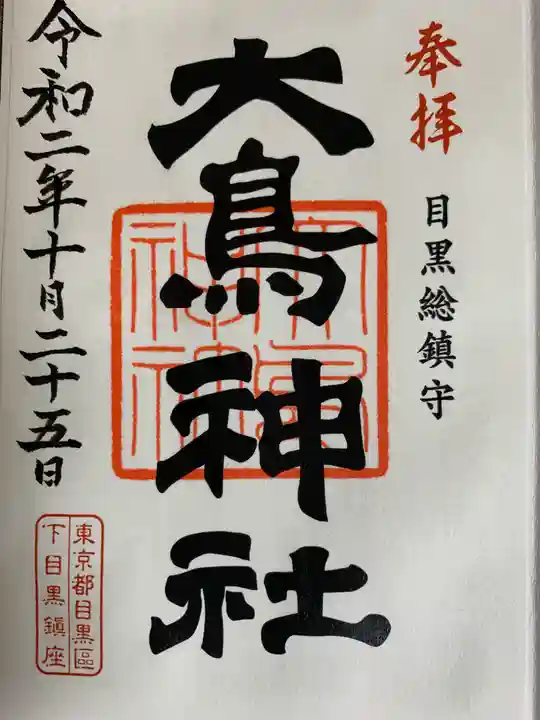 奉拝
目黒総鎮守
大鳥神社
大鳥神社
令和二年十月二十五日
東京都目黒區
下目黒鎮座